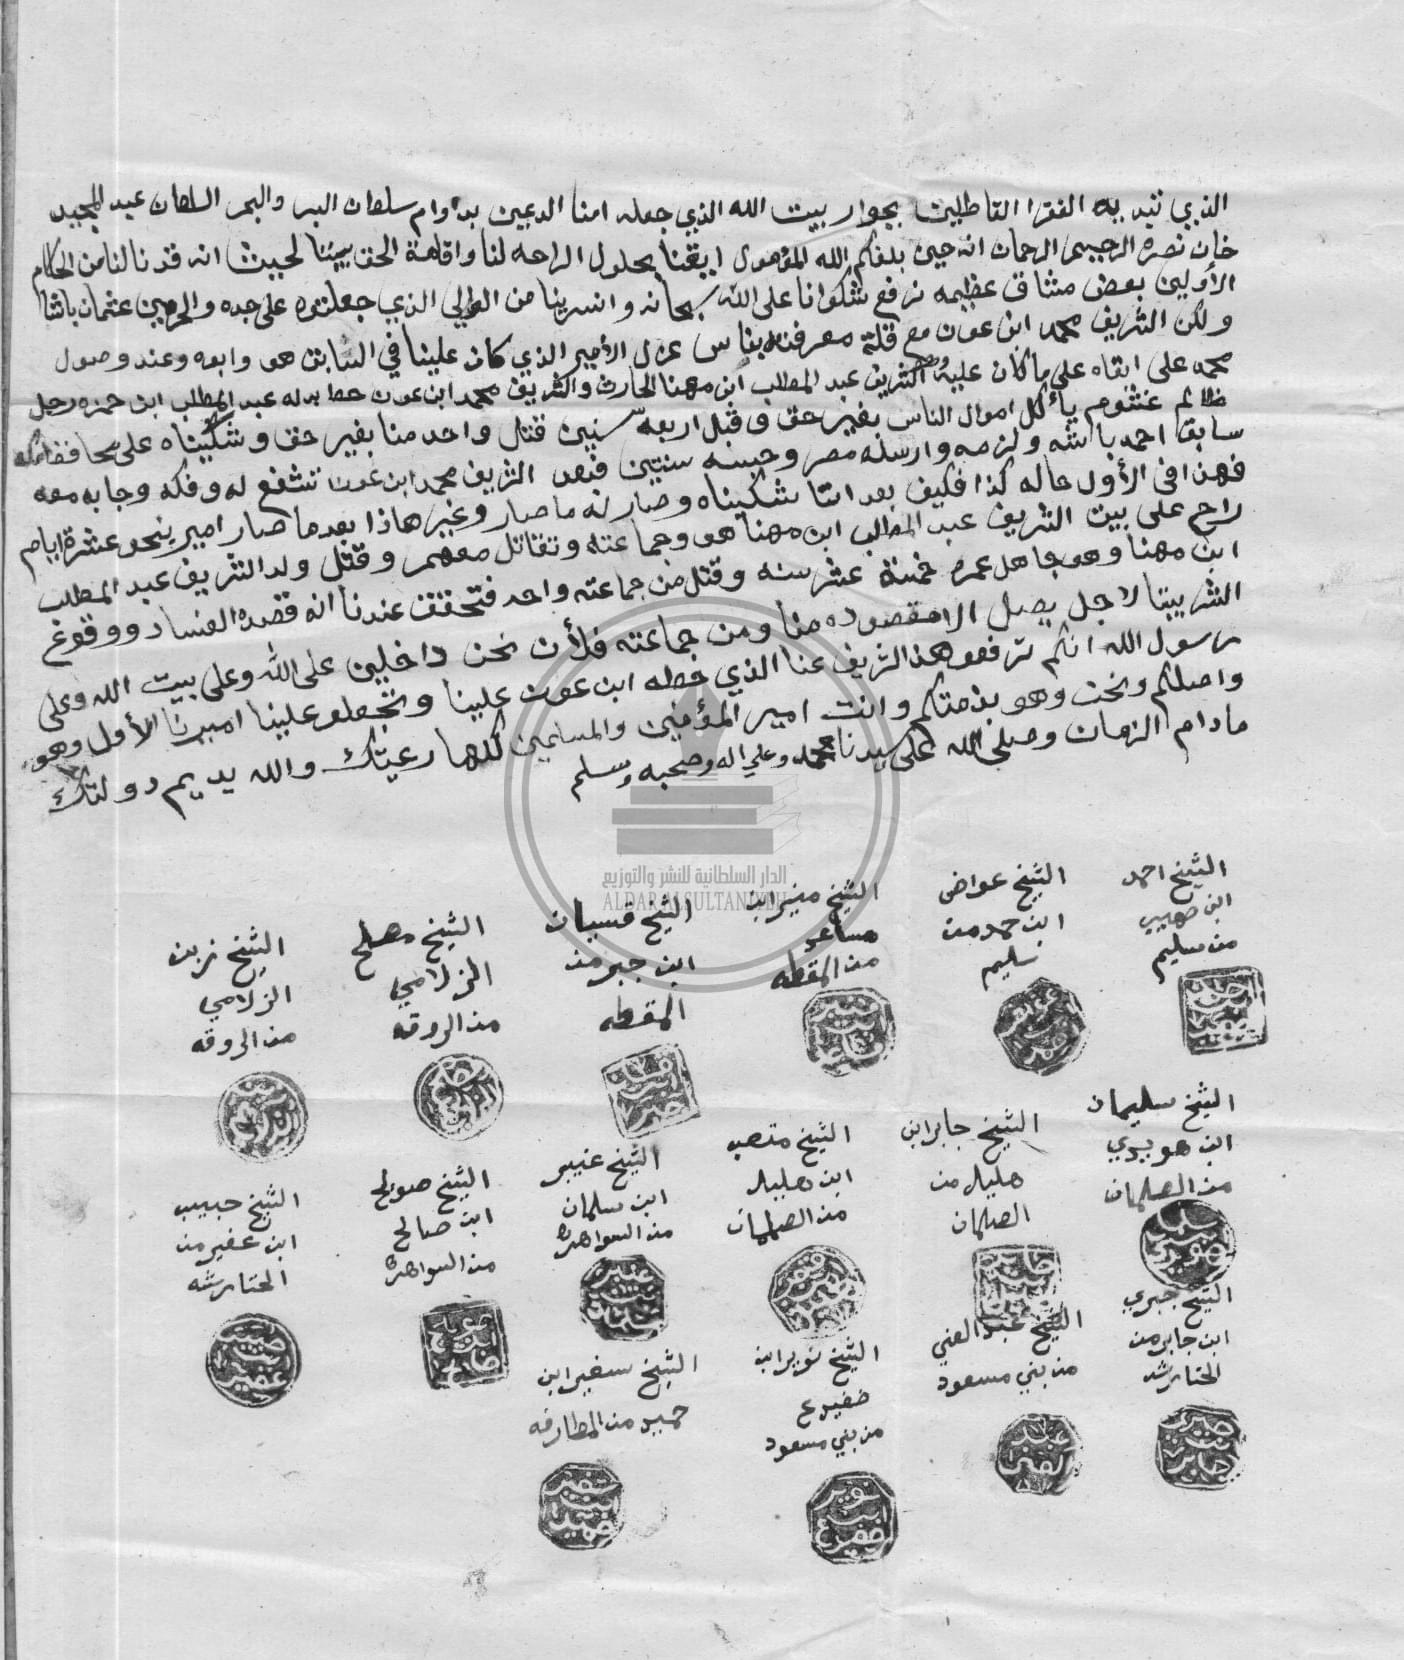 الذي نتد به الفقرا القاطنين بجوار بيت الله الذي جعله امنا الدعين بدوام سلطان البر والبحر السلطان عبد المجيد
خان نصره الرحيم الرحمان انه حين بلغكم الله المؤمول ايقنا بحلول الراحه لنا واقامة الحق بيننا لحيث انه قد نالنا من الحكام
الأولين بعض مشاق عظيمه نرفع شكوانا على الله سبحانه و من الوالي الذي جعلتوه على جده والحرمين عثمان باشا
ولكن الشريف محمد ابن عون مع قلة معرفته بناس عزل الأمير الذي كان علينا في السابق هو وابوه وعند وصول
محمد على ابقاه على ما كان عليه وهو الشريف عبد المطلب ابن مهنا الحارث والشريف محمد ابن عون حط بدله عبد المطلب ابن حمزه رجل
ظالم غشوم يأكل اموال الناس بغير حق وقبل اربعة سنين قتل واحد منا بغير حق وشكيناه على
سابقا احمد باشه ولزمه وارسله مصر وحبسه سنتين فبعد الشريف محمد ابن عون تشفع له وفكه وجابه معه
فهذا في الأول حاله كذا فكيف بعد انتا شكيناه وصار له ما صار وغير هاذا بعد ما صار امير بنحو عشرة ايام
راح على بيت الشريف عبد المطلب ابن مهنا هو وجماعته وتقاتل معهم وقتل ولد الشريف عبد المطلب
ابن مهنا وهو جاهل عمره خمسة عشر سنه وقتل من جماعته واحد فتحقق عندنا انه قصده الفساد ووقوع
الشر بيتا لاجل يصل الا مقصوده منا ومن جماعته فلأن نحن داخلين على الله وعلى بيت الله وعلى
رسول الله انكم ترفعو هذا الشريف عنا الذي حطه ابن عون علينا وتجعلو علينا اميرنا الأول وهو
واصلكم ونحن وهو بذمتكم وانت امير المؤمنين والمسلمين كلها رعيتك والله يديم دولتك
مادام الزمان وصلى الله على سيدنا محمد وعلى اله وصحبه وسلم
الدار السلطانية للنشر والتوزيع
ALDAR ALSULTANIYEH
الشيخ احمد
ابن صهيب
من سليم
الشيخ عواض
ابن حمد من
سليم
الشيخ منير ابن
مساعد
من المقطه
الشيخ قسيان
ابن جبر من
المقطه
الشيخ مصلح
الزلامي
من الروقه
الشيخ زبن
الزلامي
من الروقه
الشيخ سليمان
ابن هويدي
من الصلمان
الشيخ جابر ابن
هليل من
الصلمان
الشيخ متعب
ابن هليل
من الصلمان
الشيخ عنيبر
ابن سلمان
من السواهره
الشيخ صويلح
ابن صالح
من السواهره
الشيخ حبيب
ابن عفير من
الختارشه
الشيخ جبري
ابن جابر من
الختارشه
الشيخ عبد الغني
من بني مسعود
الشيخ نوير ابن
ضفيدع
من بني مسعود
الشيخ سفير ابن
حميد من المطارفه